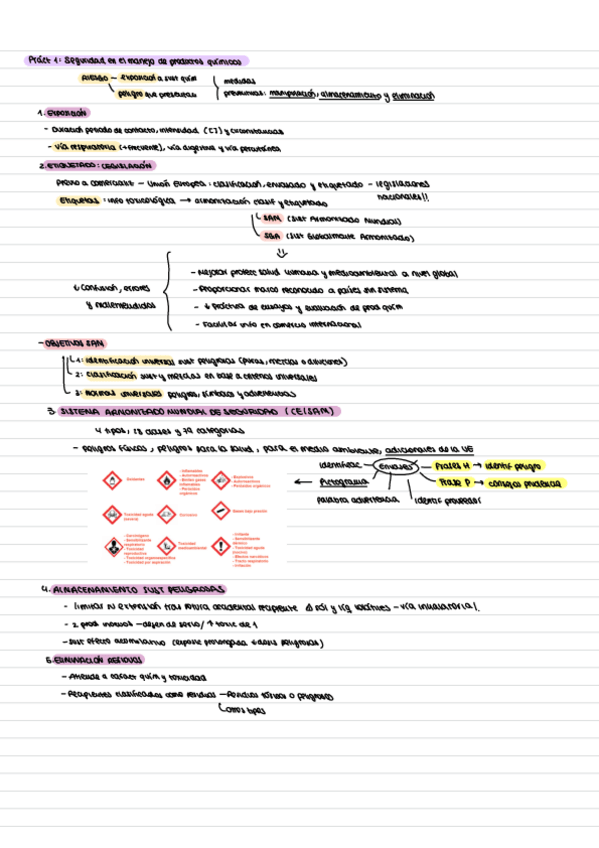 Práct 1: Seguridad en el manejo de productos químicos
RIESGO — exposición a sust quím
peligro que presentan
medidas
preventivas: manipulación, almacenamiento y eliminación
1. EXPOSICIÓN
- Duración periodo de contacto, intensidad ([]) y circunstancias
- vía respiratoria (+frecuente), vía digestiva y vía percutánea
2. ETIQUETADO: LEGISLACIÓN
Previo a comercializ — Unión Europea: clasificación, envasado y etiquetado — legislaciones
nacionales!!
Etiquetas: info toxicológica → armonización clasif y etiquetado
SAM (Sist Armonizado Mundial)
SGA (Sist Globalmente Armonizado)
↓ Confusión, errores
y malentendidos
- Mejorar protecc salud humana y medioambiental a nivel global
- Proporcionar marco reconocido a países sin sistema
- ↓ Práctica de ensayos y evaluación de prod quím
- Facilitar info en comercio internacional
- OBJETIVOS SAM
1: identificación universal sust peligrosas (puras, mezclas o diluciones)
2: clasificación sust y mezclas en base a criterios universales
3: normas universales peligros, símbolos y advertencias
3. SISTEMA ARMONIZADO MUNDIAL DE SEGURIDAD (CE/SAM)
4 tipos, 28 clases y 79 categorías
- peligros físicos, peligros para la salud, para el medio ambiente, adicionales de la UE
identificac
envases
Frases H → identif peligro
Pictograma
Frase P → consejos prudencia
palabra advertencia
identif proveedor
Oxidantes
- Inflamables
- Autorreactivos
- Explosivos
- Autorreactivos
- Peróxidos orgánicos
Toxicidad aguda
Corrosión
Gases bajo presión
- Carcinógeno
- Sensibilizante respiratorio
- Toxicidad reproductiva
- Toxicidad por aspiración
Toxicidad medioambiental
- Irritante
- Sensibilizante dérmico
- Toxicidad aguda
- Efectos narcóticos
- Tracto respiratorio
- Irritación
4. ALMACENAMIENTO SUST PELIGROSAS
- limitar su extensión tras rotura accidental recipiente
- vía inhalatoria!
- 2 prod inocuos — dejan de serlo / ↑ toxic de 1
- Sust efecto acumulativo
5. ELIMINACIÓN RESIDUOS
- Atiende a caract quím y toxicidad
- Recipientes clasificados como residuos — Residuos tóxicos o peligrosos
otros tipos